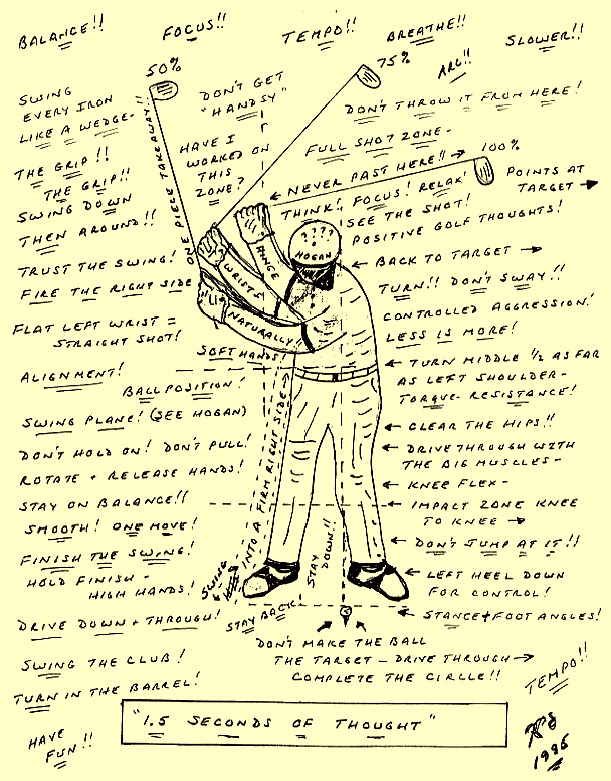 BALANCE!!
FOCUS!!
TEMPO!!
BREATHE!!
SLOWER!!
50%
75%
ARG!!
SWING
EVERY IRON
LIKE A WEDGE-
DON'T GET
"HANDSY"
DON'T THROW IT FROM HERE!
ONE PIECE TAKEAWAY!!
HAVE I
WORKED ON
THIS
ZONE?
FULL SHOT ZONE-
100%
THE GRIP!!
THE GRIP!!
← NEVER PAST HERE!! →
POINTS AT
TARGET →
SWING DOWN
THEN AROUND!!
THINK! FOCUS! RELAX!
SEE THE SHOT!
POSITIVE GOLF THOUGHTS!
????
HOGAN
TRUST THE SWING!
FIRE THE RIGHT SIDE
WRISTS
HINGE
NATURALLY!
← BACK TO TARGET →
TURN!! DON'T SWAY!!
CONTROLLED AGGRESSION!
LESS IS MORE!
FLAT LEFT WRIST =
STRAIGHT SHOT!
SOFT HANDS!
ALIGNMENT!
BALL POSITION!
← TURN MIDDLE 1/2 AS FAR
AS LEFT SHOULDER-
TORQUE-RESISTANCE!
SWING PLANE! (SEE HOGAN)
← CLEAR THE HIPS!!
DON'T HOLD ON! DON'T PULL!
ROTATE + RELEASE HANDS!
← DRIVE THROUGH WITH
THE BIG MUSCLES-
← KNEE FLEX-
STAY ON BALANCE!!
SMOOTH! ONE MOVE!
← IMPACT ZONE KNEE
TO KNEE →
FINISH THE SWING!
HOLD FINISH-
HIGH HANDS!
SWING
INTO A FIRM RIGHT SIDE→
STAY DOWN!!
← DON'T JUMP AT IT!!
← LEFT HEEL DOWN
FOR CONTROL!
DRIVE DOWN + THROUGH!
STAY BACK
← STANCE + FOOT ANGLES!
DON'T MAKE THE BALL
THE TARGET - DRIVE THROUGH →
COMPLETE THE CIRCLE!!
SWING THE CLUB!
TURN IN THE BARREL!
TEMPO!!
"1.5 SECONDS OF THOUGHT"
HAVE
FUN!!
1995